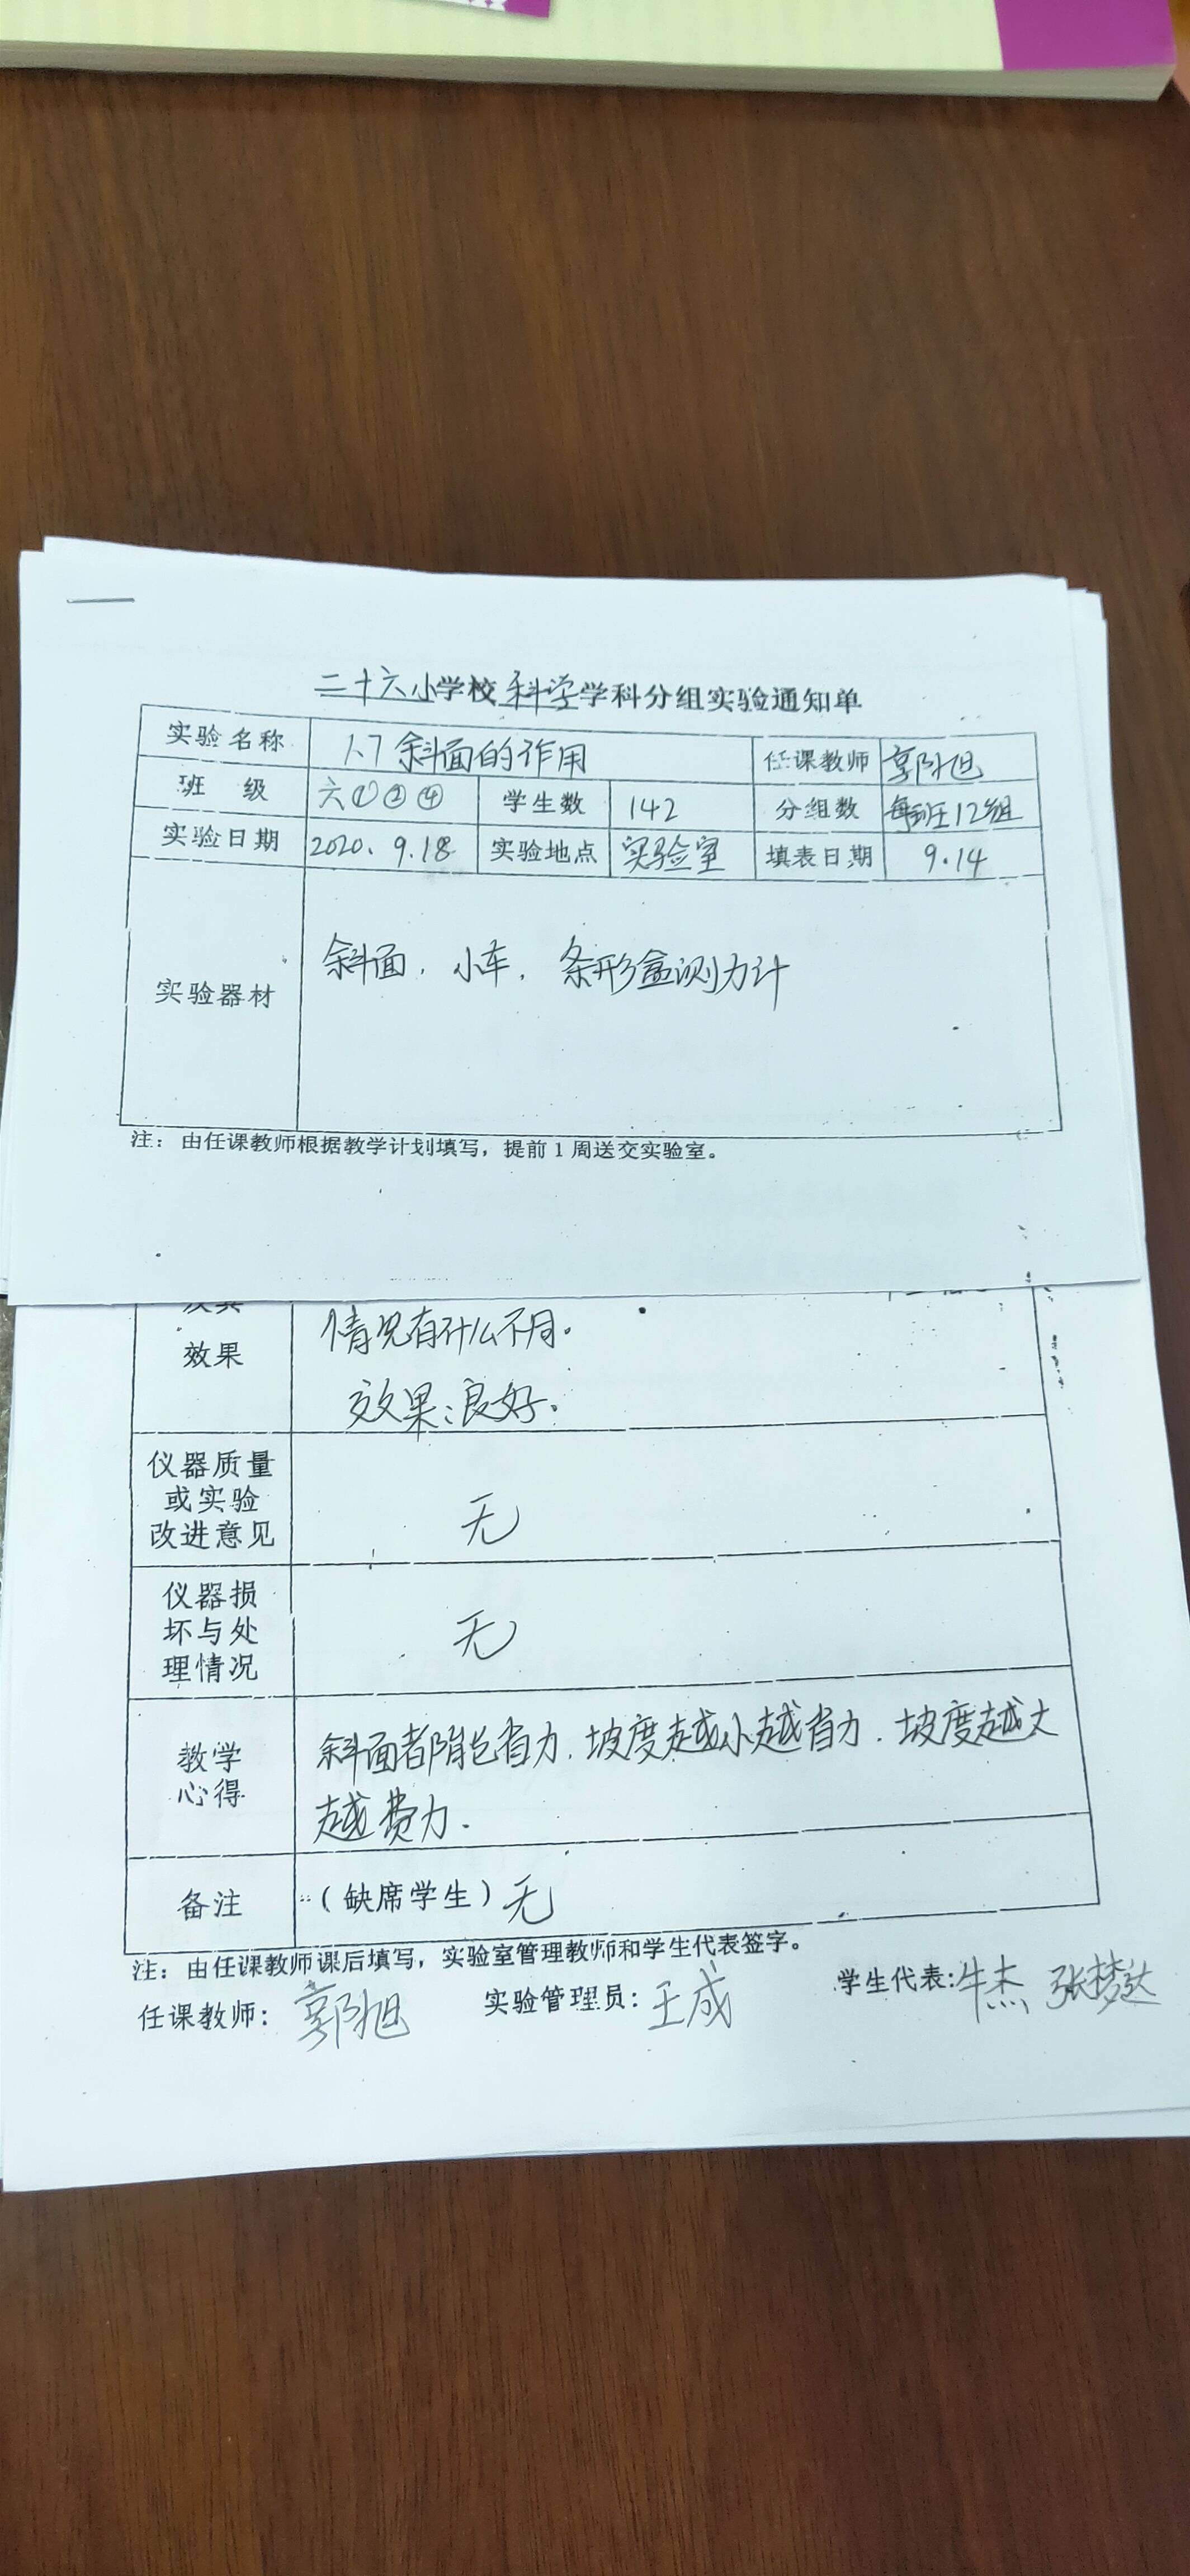 二十六小学校科学学科分组实验通知单
实验名称 1.7 斜面的作用 任课教师 郭旭
班 级 六①②④ 学生数 142 分组数 每班12组
实验日期 2020.9.18 实验地点 实验室 填表日期 9.14
实验器材 斜面、小车、条形盒测力计
注：由任课教师根据教学计划填写，提前1周送交实验室。
效果 情况有什么不同。
效果：良好。
仪器质量
或实验
改进意见 无
仪器损
坏与处
理情况 无
教学
心得 斜面都能省力.坡度越小越省力.坡度越大
越费力.
备注 （缺席学生）无
注：由任课教师课后填写，实验室管理教师和学生代表签字。
任课教师：郭旭 实验管理员：王成 学生代表:牛杰 张梦达